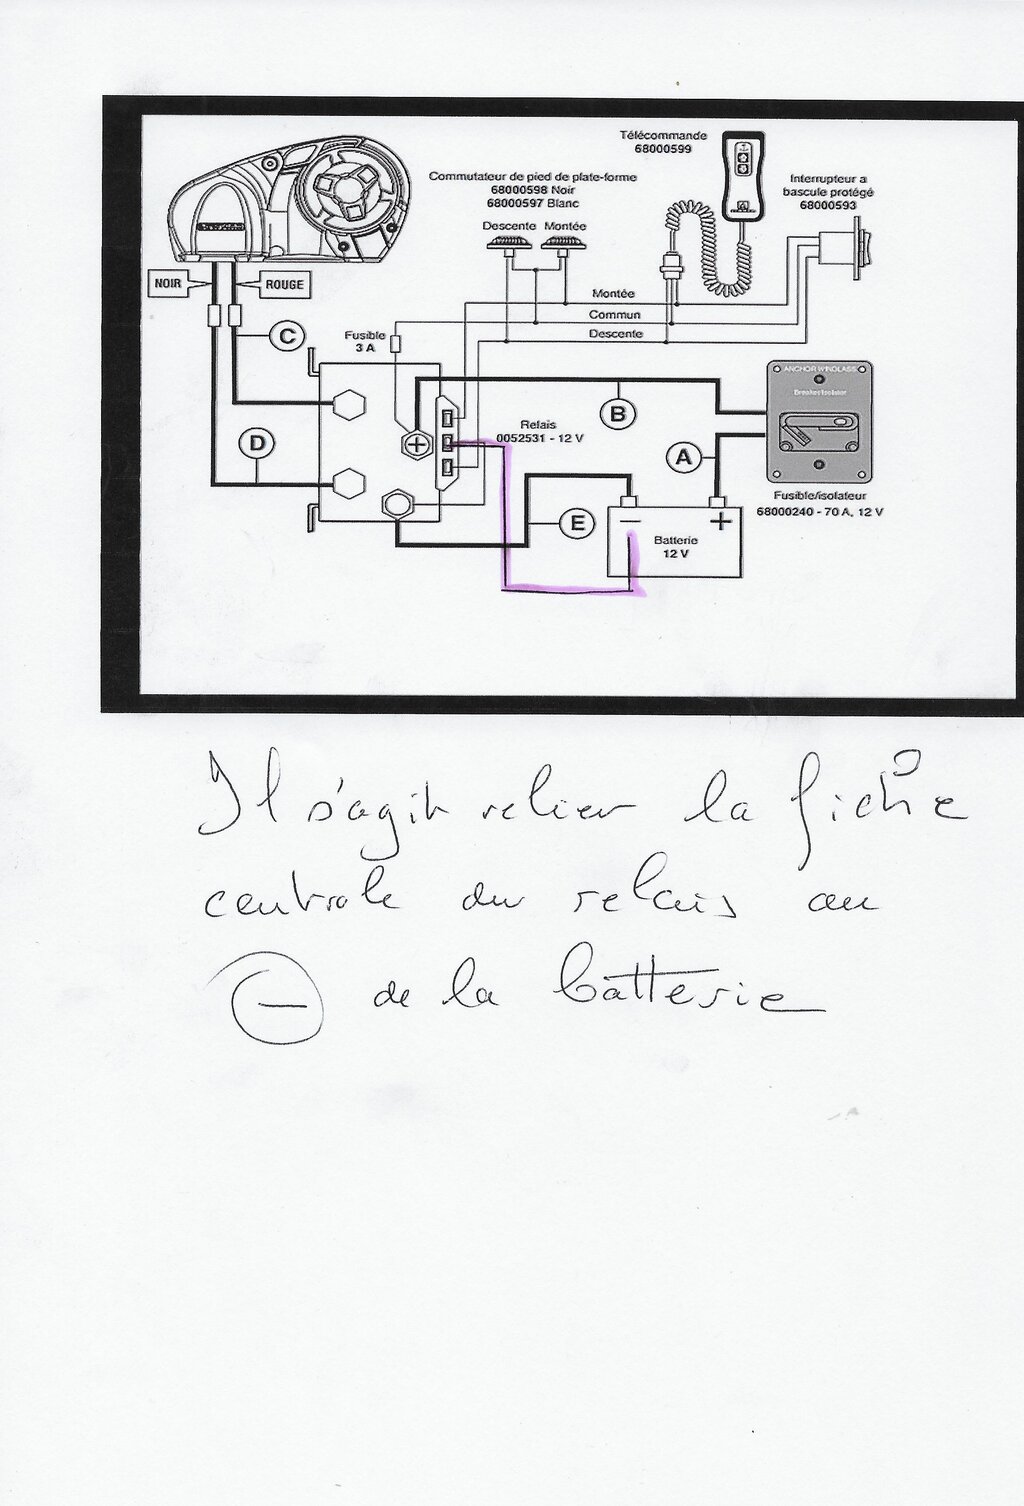 Télécommande
68000599
Commutateur de pied de plate-forme
68000598 Noir
68000597 Blanc
Interrupteur a
bascule protégé
68000593
Descente Montée
NOIR
ROUGE
Montée
Commun
Descente
C
Fusible
3 A
ANCHOR WINDLASS
Breaker/Isolator
B
+
Relais
0052531 - 12 V
D
A
Fusible/isolateur
68000240 - 70 A, 12 V
E
− +
Batterie
12 V
Il s'agit relier la fiche
centrale du relais au
− de la batterie